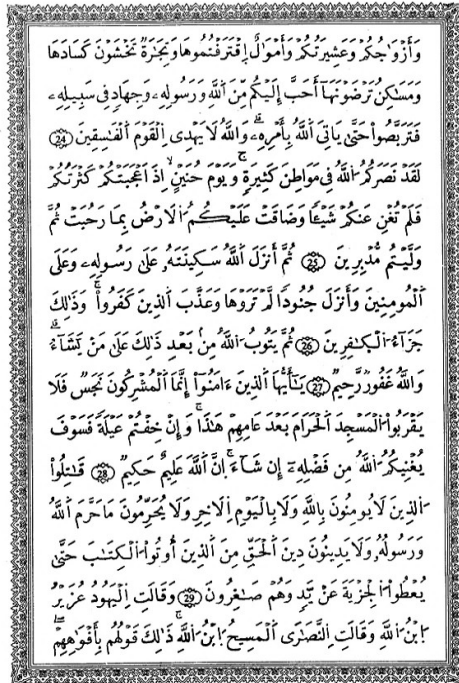 وَأَزْوَٰجُكُمْ وَعَشِيرَتُكُمْ وَأَمْوَٰلٌ اِ۪قْتَرَفْتُمُوهَا وَتِجَٰرَةٌ تَخْشَوْنَ كَسَادَهَا
وَمَسَٰكِنُ تَرْضَوْنَهَآ أَحَبَّ إِلَيْكُم مِّنَ اَ۬للَّهِ وَرَسُولِهِۦ وَجِهَادٍ فِى سَبِيلِهِۦ
فَتَرَبَّصُوا۟ حَتَّىٰ يَاتِىَ اَ۬للَّهُ بِأَمْرِهِۦۗ وَاللَّهُ لَا يَهْدِى اِ۬لْقَوْمَ اَ۬لْفَٰسِقِينَ 24
لَقَدْ نَصَرَكُمُ اُ۬للَّهُ فِى مَوَاطِنَ كَثِيرَةٍ وَيَوْمَ حُنَيْنٍ اِذَ اَعْجَبَتْكُمْ كَثْرَتُكُمْ
فَلَمْ تُغْنِ عَنكُمْ شَيْـًٔا وَضَاقَتْ عَلَيْكُمُ اُ۬لَارْضُ بِمَا رَحُبَتْ ثُمَّ
وَلَّيْتُم مُّدْبِرِينَ 25 ثُمَّ أَنزَلَ اَ۬للَّهُ سَكِينَتَهُۥ عَلَىٰ رَسُولِهِۦ وَعَلَى
اَ۬لْمُومِنِينَ وَأَنزَلَ جُنُودًا لَّمْ تَرَوْهَا وَعَذَّبَ اَ۬لَّذِينَ كَفَرُوا۟ وَذَٰلِكَ
جَزَآءُ اُ۬لْكَٰفِرِينَ 26 ثُمَّ يَتُوبُ اُ۬للَّهُ مِنۢ بَعْدِ ذَٰلِكَ عَلَىٰ مَنْ يَّشَآءُۗ
وَاللَّهُ غَفُورٌ رَّحِيمٌ 27 يَٰٓأَيُّهَا اَ۬لَّذِينَ ءَامَنُوٓا۟ إِنَّمَا اَ۬لْمُشْرِكُونَ نَجَسٌ فَلَا
يَقْرَبُوا۟ اُ۬لْمَسْجِدَ اَ۬لْحَرَامَ بَعْدَ عَامِهِمْ هَٰذَا وَإِنْ خِفْتُمْ عَيْلَةً فَسَوْفَ
يُغْنِيكُمُ اُ۬للَّهُ مِن فَضْلِهِۦٓ إِن شَآءَ اِنَّ اَ۬للَّهَ عَلِيمٌ حَكِيمٌ 28 قَٰتِلُوا۟
اُ۬لَّذِينَ لَا يُومِنُونَ بِاللَّهِ وَلَا بِالْيَوْمِ اِ۬لَاخِرِ وَلَا يُحَرِّمُونَ مَا حَرَّمَ اَ۬للَّهُ
وَرَسُولُهُۥ وَلَا يَدِينُونَ دِينَ اَ۬لْحَقِّ مِنَ اَ۬لَّذِينَ أُوتُوا۟ اُ۬لْكِتَٰبَ حَتَّىٰ
يُعْطُوا۟ اُ۬لْجِزْيَةَ عَنْ يَّدٍ وَهُمْ صَٰغِرُونَ 29 وَقَالَتِ اِ۬لْيَهُودُ عُزَيْرُ
اُ۪بْنُ اُ۬للَّهِ وَقَالَتِ اِ۬لنَّصَٰرَى اَ۬لْمَسِيحُ اُ۪بْنُ اُ۬للَّهِ ذَٰلِكَ قَوْلُهُم بِأَفْوَٰهِهِمْ